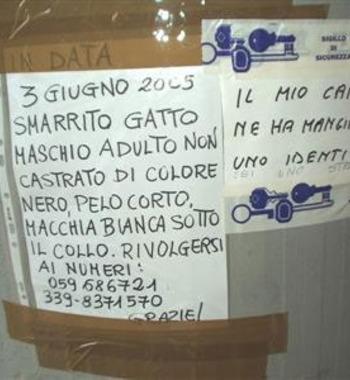 IN DATA
3 GIUGNO 2005
SMARRITO GATTO
MASCHIO ADULTO NON
CASTRATO DI COLORE
NERO, PELO CORTO,
MACCHIA BIANCA SOTTO
IL COLLO. RIVOLGERSI
AI NUMERI:
059 686721
339-8371570
GRAZIE!
SIGILLO
DI
SICUREZZA
IL MIO CA
NE HA MANGI
UNO IDENTI